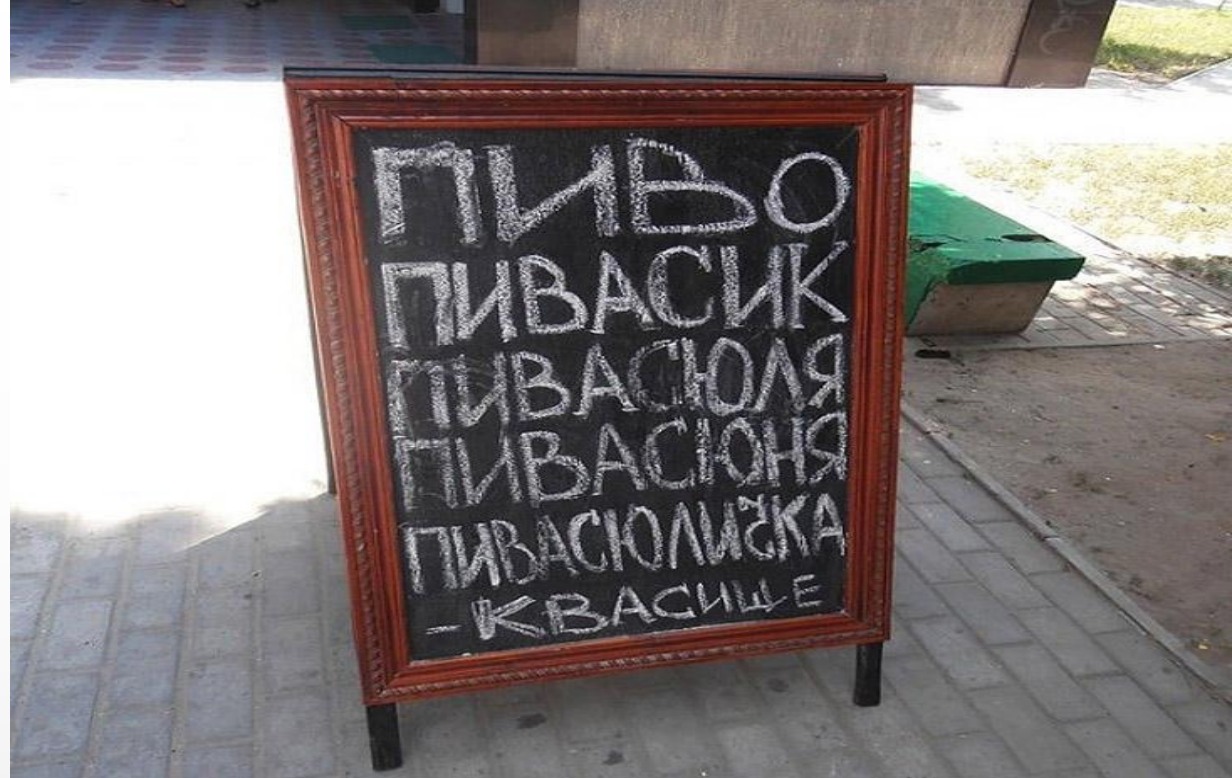 ПИВО
ПИВАСИК
ПИВАСЮЛЯ
ПИВАСЮНЯ
ПИВАСЮЛИЧКА
-КВАСИЩЕ